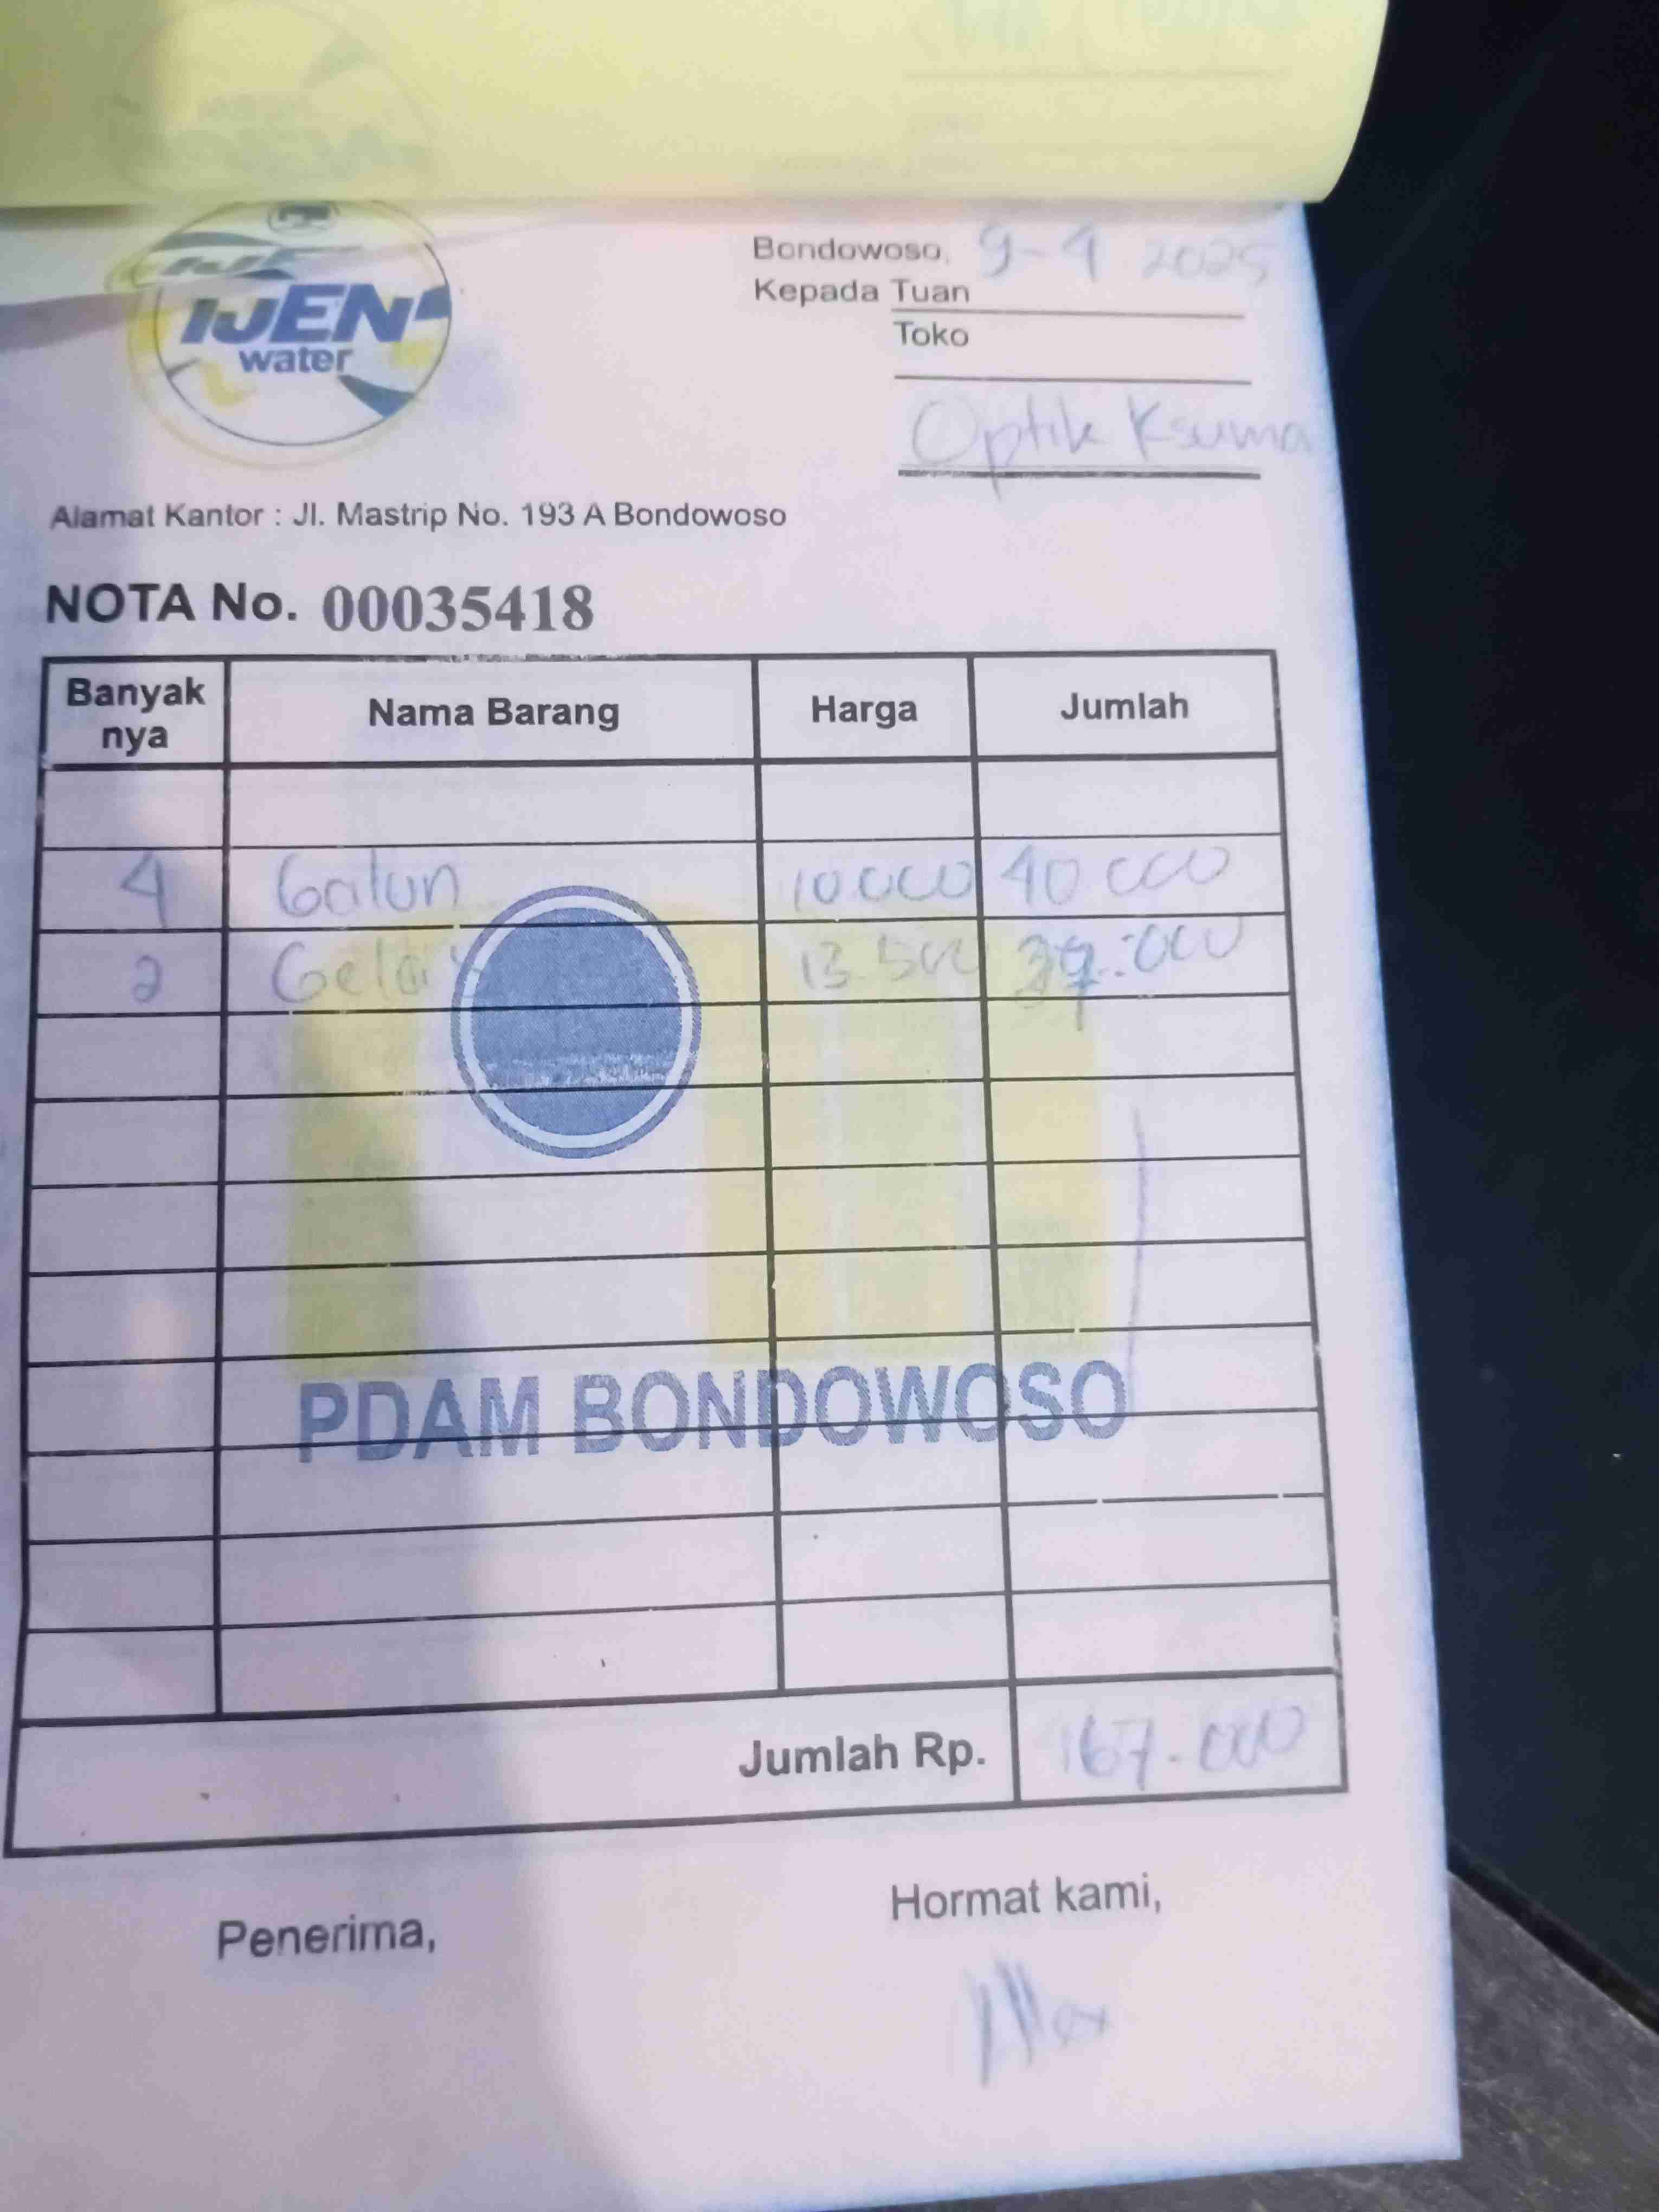 IJEN
water
Bondowoso, 9-4 2025
Kepada Tuan
Toko
Optik Ksuma
Alamat Kantor : Jl. Mastrip No. 193 A Bondowoso
NOTA No. 00035418
Banyak nya Nama Barang Harga Jumlah
4 Galon 10.000 40 000
2 Gelas 13.500 27.000
PDAM BONDOWOSO
Jumlah Rp. 167.000
Penerima,
Hormat kami,